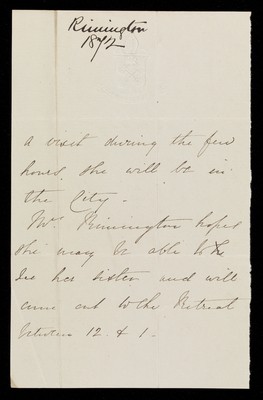 Rimington
1872
a visit during the few
hours, she will be in
the City.
Mrs Rimington hopes
she may be able to
see her sister and will
come out to the Retreat
between 12 & 1.